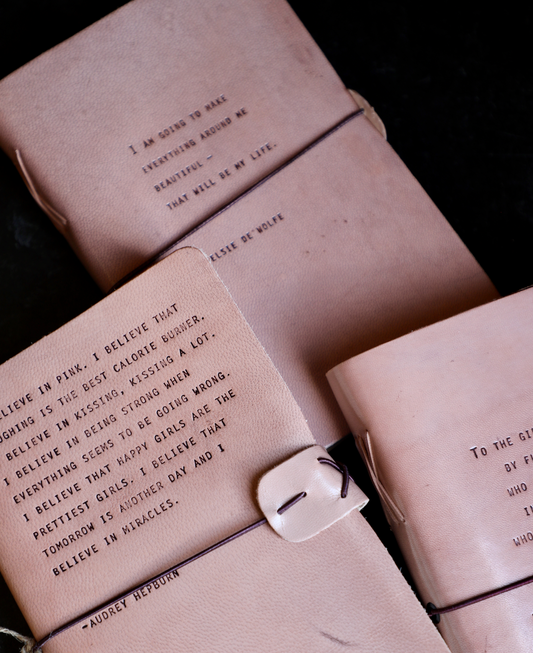 I AM GOING TO MAKE
EVERYTHING AROUND ME
BEAUTIFUL —
THAT WILL BE MY LIFE.
ELSIE DE WOLFE
IN PINK. I BELIEVE THAT
IS THE BEST CALORIE BURNER.
BELIEVE IN KISSING, KISSING A LOT.
I BELIEVE IN BEING STRONG WHEN
EVERYTHING SEEMS TO BE GOING WRONG.
I BELIEVE THAT HAPPY GIRLS ARE THE
PRETTIEST GIRLS. I BELIEVE THAT
TOMORROW IS ANOTHER DAY AND I
BELIEVE IN MIRACLES.
-AUDREY HEPBURN
TO THE
BY
WHO